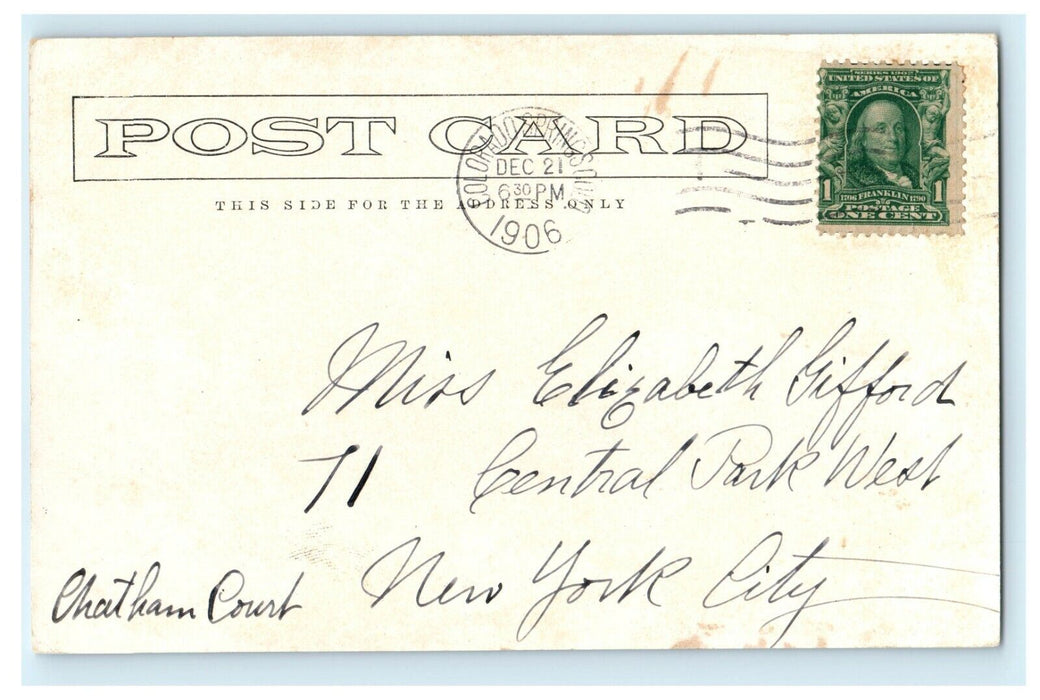 POST CARD
THIS SIDE FOR THE ADDRESS ONLY
COLORADO SPRINGS COLO
DEC 21
6 30 PM
1906
SERIES 1902
UNITED STATES OF
AMERICA
1706 FRANKLIN 1790
1 POSTAGE 1
ONE CENT
Miss Elizabeth Gifford
71 Central Park West
New York City
Chatham Court